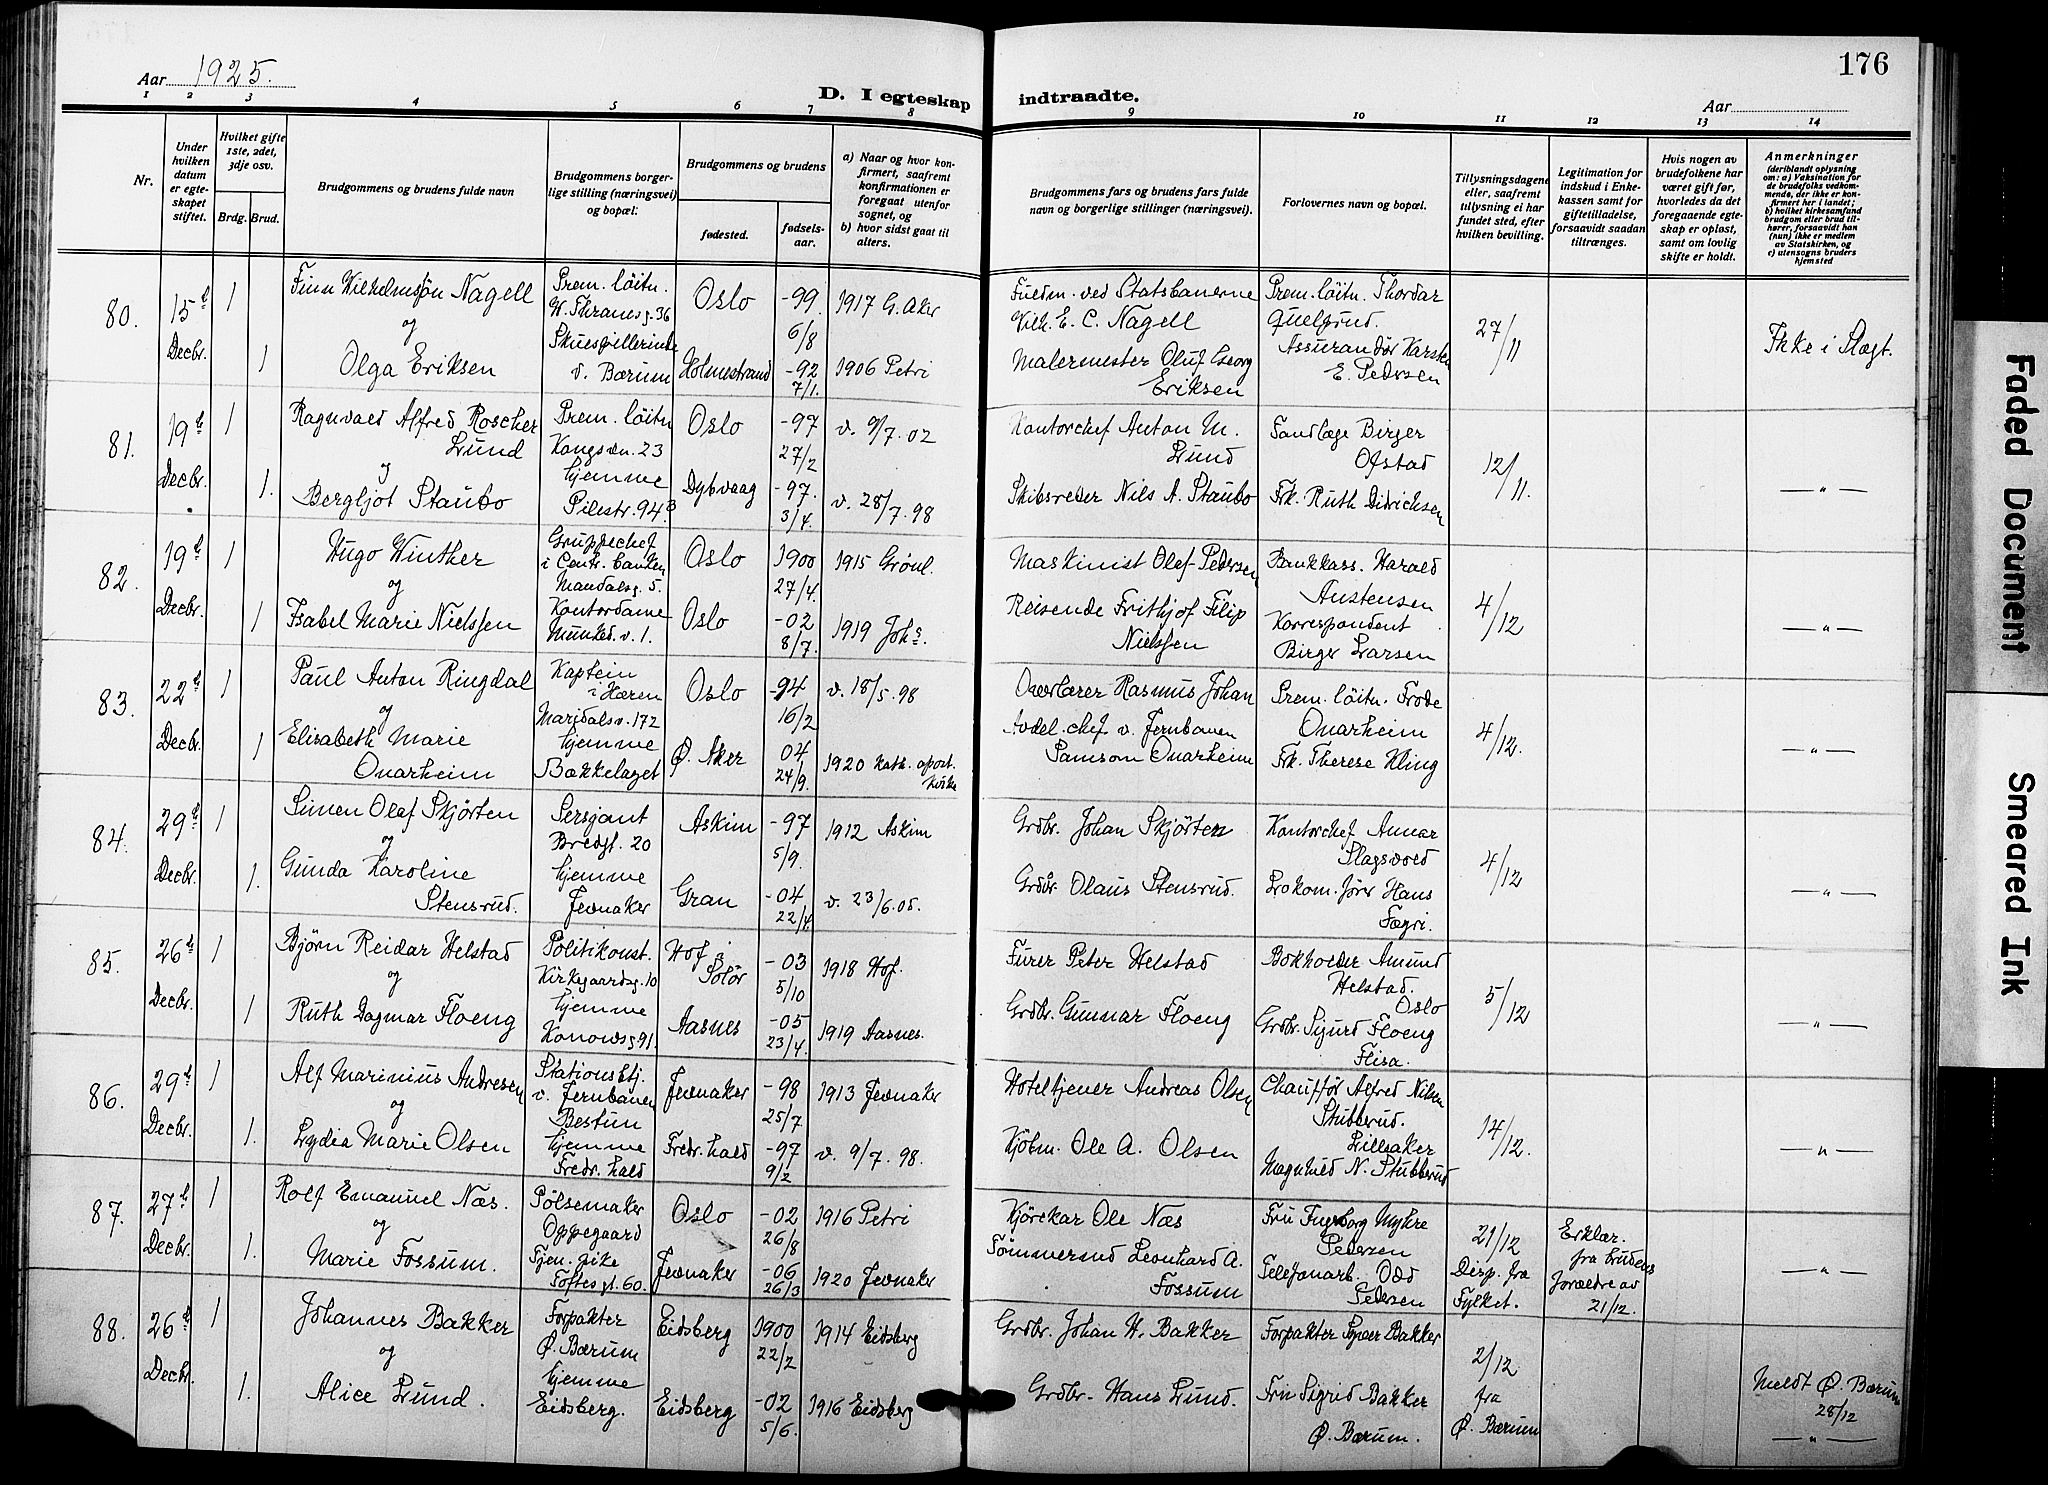 Aar 1925.
176
D. I egteskap indtraadte.
Aar
1 2 3 4 5 6 7 8 9 10 11 12 13 14
Nr.
Under hvilken datum er egteskapet stiftet.
Hvilket gifte 1ste, 2det, 3dje osv.
Brdg. Brud.
Brudgommens og brudens fulde navn
Brudgommens borgerlige stilling (næringsvei) og bopæl.
Brudgommens og brudens
fødested.
fødselsaar.
a) Naar og hvor konfirmert, saafremt konfirmationen er foregaat utenfor sognet, og
b) hvor sidst gaat til alters.
Brudgommens fars og brudens fars fulde navn og borgerlige stillinger (næringsvei).
Forlovernes navn og bopæl.
Tillysningsdagene eller, saafremt tillysning ei har fundet sted, efter hvilken bevilling.
Legitimation for indskud i Enkekassen samt for giftetilladelse, forsaavidt saadan tiltrænges.
Hvis nogen av brudefolkene har været gift før, hvorledes da det foregaaende egteskap er opløst, samt om lovlig skifte er holdt.
Anmerkninger (deriblandt oplysning om: a) Vaksination for de brudefolks vedkommende, der ikke er konfirmert her i landet; b) hvilket kirkesamfund brudgom eller brud tilhører, forsaavidt han (hun) ikke er medlem av Statskirken, og c) utensogns bruders hjemsted
80. 15de Decbr. 1 Finn Wilhelmsøn Nagell Prem. löitn. W. Thranesg. 36 Oslo -99 6/8 1917 G. Aker Vilh. E. C. Nagell Prem. löitn. Thordar 27/11
og
1 Olga Eriksen Skuespillerinde v. Bærum Holmestrand -92 7/1. 1906 Petri Malermester Oluf Georg Eriksen Assurandör Karsten E. Pedersen Ikke i Slægt.
81. 19de Decbr. 1 Ragnvald Alfred Roscher Lund Prem. löitn Kongsvn. 23 Oslo -97 27/2 v. 9/7.02 Kontorchef Anton M. Lund Tandlæge Birger Ofstad 12/11.
og
1. Bergljot Staubo hjemme Pilestr. 94 Dybvaag -97. 3/4. v. 28/7.98 Skibsreder Nils A. Staubo Frk. Ruth Didrichsen — " —
82. 19de Decbr. 1 Hugo Winther Gruppechef i Centr. banken Mandalsg. 5. Oslo 1900 27/4. 1915 Grönl. Maskinist Olaf Pedersen Bankkass. Harald Austensen 4/12
og
1 Isabel Marie Nielsen Kontordame Munked. v. 1. Oslo -02 8/7. 1919 Johs. Reisende Frithjof Filip Nielsen Korrespondent Birger Larsen — " —
83. 22de Decbr. 1 Paul Anton Ringdal Kaptein i Hæren Maridalsv. 172 Oslo -94 16/2 v. 18/5.98 Overlærer Rasmus Johan Prem. löitn. Frode Onarheim 4/12.
og
1 Elisabeth Marie Onarheim hjemme Bækkelaget Ø. Aker 04 24/9. 1920 Kath. apost. Kirke Avdel. chef v. Jernbanen Samson Onarheim Frk. Therese Kling — " —
84. 29de Decbr. 1 Simen Olaf Skjörten Sersjant Bredgt. 20 Askim -97 5/9. 1912 Askim Grdbr. Johan Skjörten Kontorchef Annar Slagsvold 4/12
og
1. Gunda Karoline Stensrud. hjemme Jevnaker Gran -04 22/4. v. 23/6.05. Grdbr. Olaus Stensrud. Lokom. förer Hans Fægri. — " —
85. 26de Decbr. 1 Bjørn Reidar Helstad Politikonst. Kirkegaardsg. 10 Hof i Solör -03 5/10 1918 Hof. Furer Peter Helstad Bokholder Amund Helstad. Oslo 5/12
og
1 Ruth Dagmar Floeng hjemme Konowsg 91. Aasnes -05 23/4. 1919 Aasnes. Grdbr. Gunnar Floeng Grdbr. Sigurd Floeng Flisa. — " —
86. 29de Decbr. 1 Alf Marinius Andresen Stationsbtj. v. Jernbanen Bestun Jevnaker -98 25/7 1913 Jevnaker Hoteltjener Andreas Olsen Chauffør Alfred Nilsen Stubberud. Lilleaker 14/12.
og
1. Lydia Marie Olsen hjemme Fredr. hald Fredr. hald -97 9/2 v. 9/7.98. Kjöbm. Ole A. Olsen Magnhild N. Stubberud — " —
87. 27de Decbr. 1 Rolf Emanuel Næs. Pölsemaker Oppegaard Oslo -02 26/8 1916 Petri Kjörekar Ole Næs Fru Ingeborg Myhre Pedersen 21/12 Disp. fra Fylket. Erklær. fra brudens forældre av 21/12.
og
1. Marie Fossum. Tjen. pike Toftes gt. 60. Jevnaker -06 26/3 1920 Jevnaker Tömmermd Leonhard A. Fossum Telefonarb. Odd Pedersen — " —
88. 26de Decbr. 1 Johannes Bakker Forpakter Ø. Bærum Eidsberg 1900 22/2 1914 Eidsberg Grdbr. Johan H. Bakker Forpakter Syver Bakker 2/12 fra Ø. Bærum
og
1. Alice Lund. hjemme Eidsberg. Eidsberg -02 5/6. 1916 Eidsberg Grdbr. Hans Lund. Fru Sigrid Bakker Ø. Bærum. Meldt Ø. Bærum 28/12 — " —
Faded Document
Smeared Ink